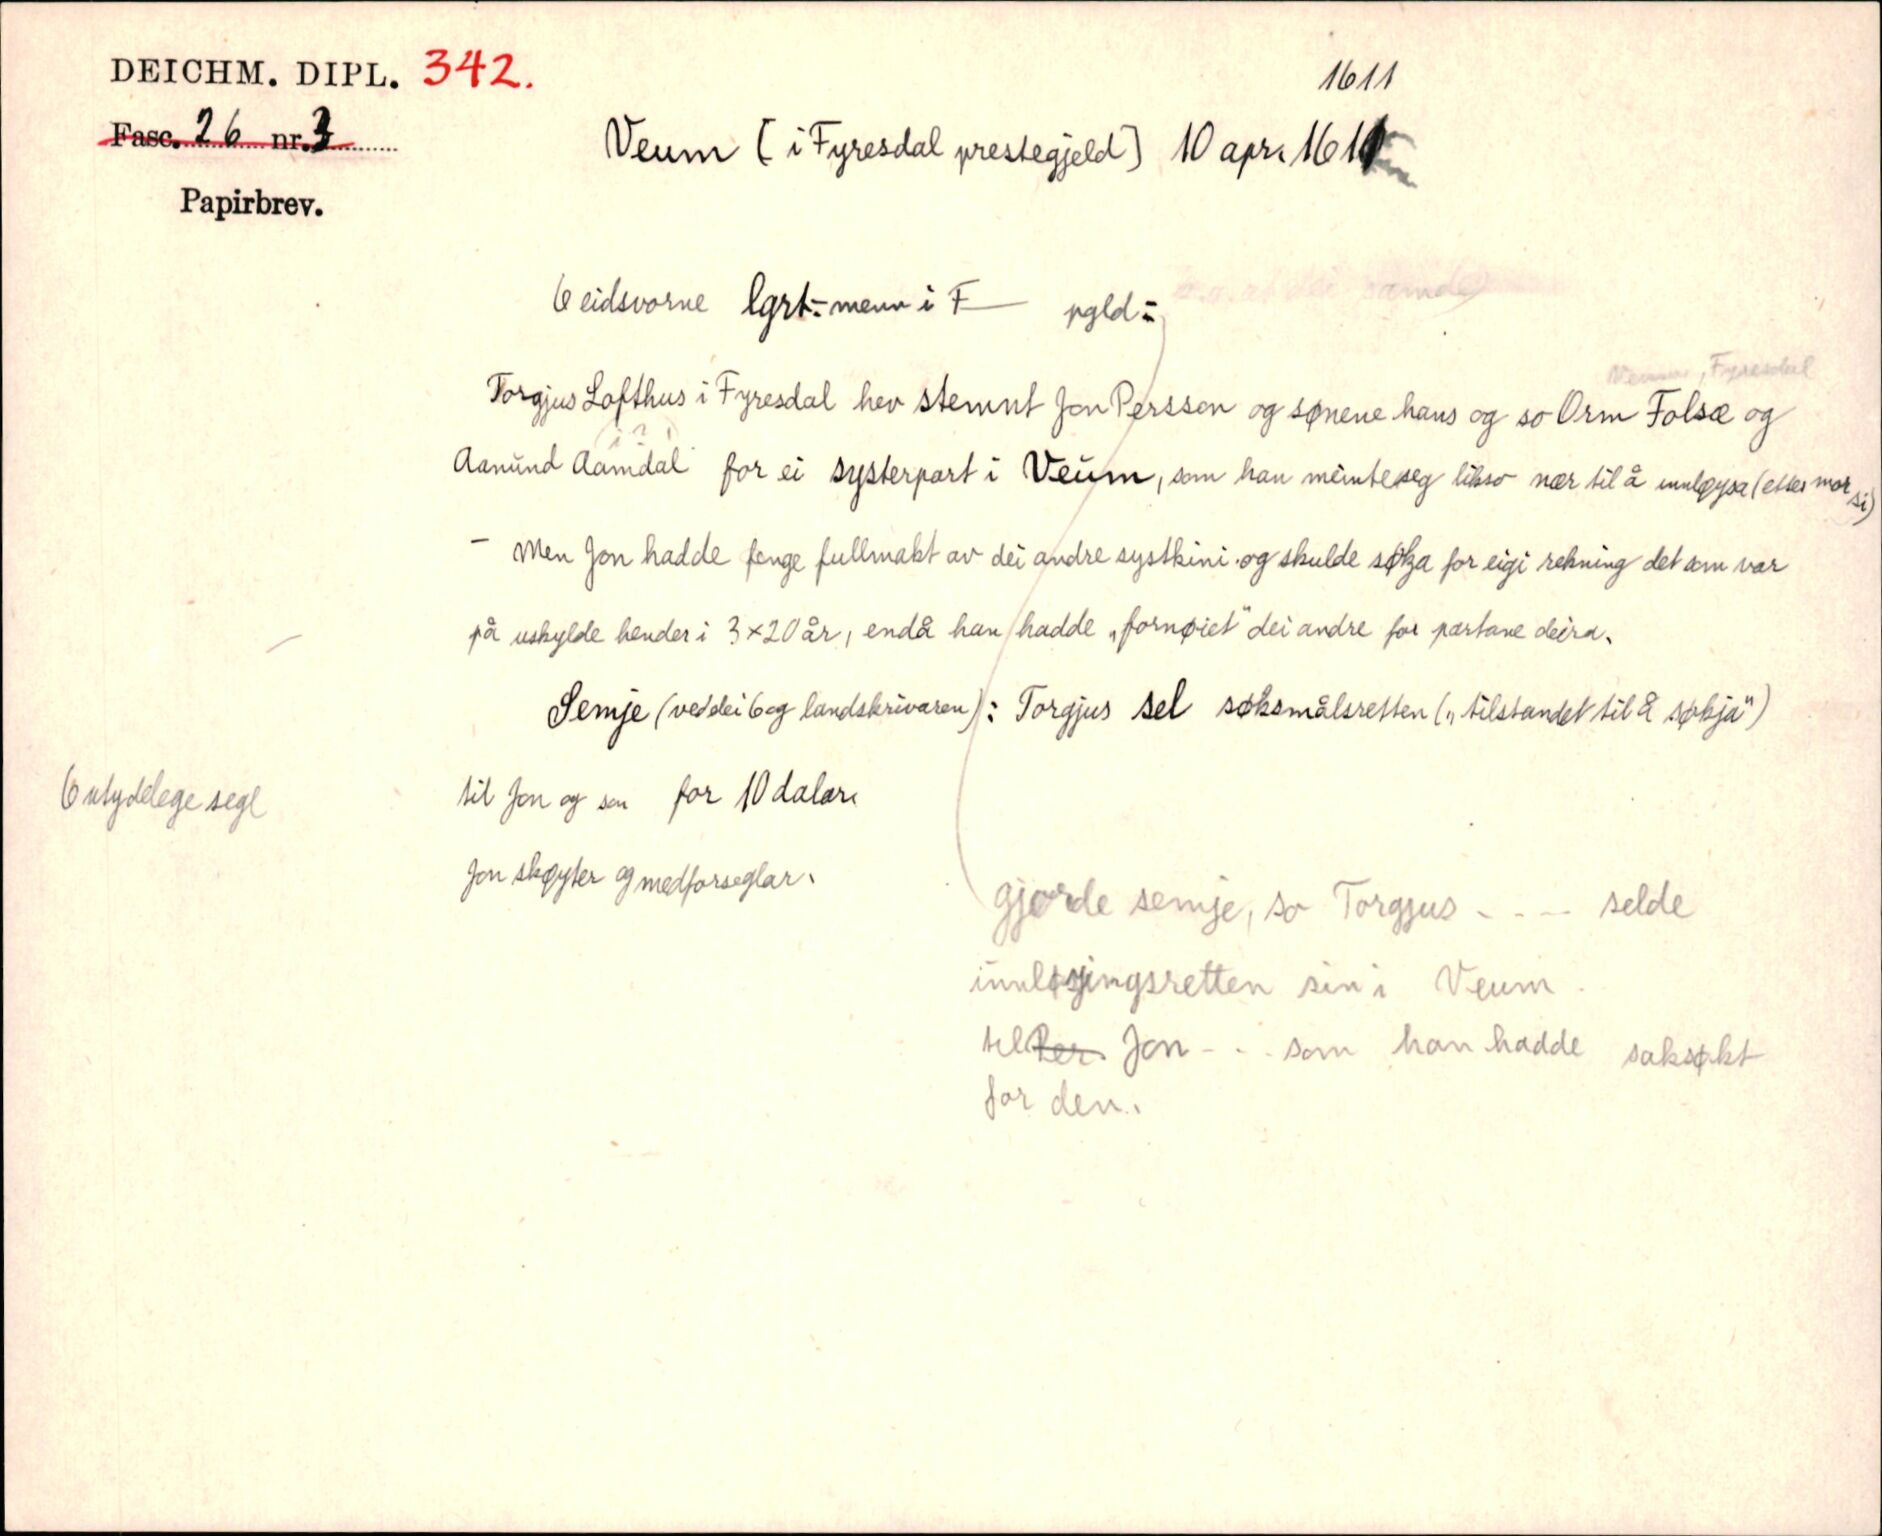 DEICHM. DIPL. 342.
Fasc. 26 nr. 3
Papirbrev.
1611
Veum [i Fyresdal prestegjeld] 10 apr. 1611
6 eidsvorne lgrt.-menn i F— pgld:
Veum, Fyresdal
Torgjus Lofthus i Fyresdal hev stemnt Jon Persson og sønene hans og so Orm Folsæ og
Aanund Aamdal for ei systerpart i Veum, som han meinte seg likso nær til å innløysa (etter mor si)
– Men Jon hadde fenge fullmakt av dei andre systkini og skulde søkja for eigi rekning det som var
på uskylde hender i 3×20 år, endå han hadde „fornøiet" dei andre for partane deira.
Semje (ved dei 6 og landskrivaren): Torgjus sel søksmålsretten („tilstandet til å søkja")
6 utydelege segl
til Jon og son for 10 dalar.
Jon skøyter og medforseglar.
gjorde semje, so Torgjus - - - - selde
innløysingsretten sin i Veum.
til Per Jon - - - som han hadde saksøkt
for den.